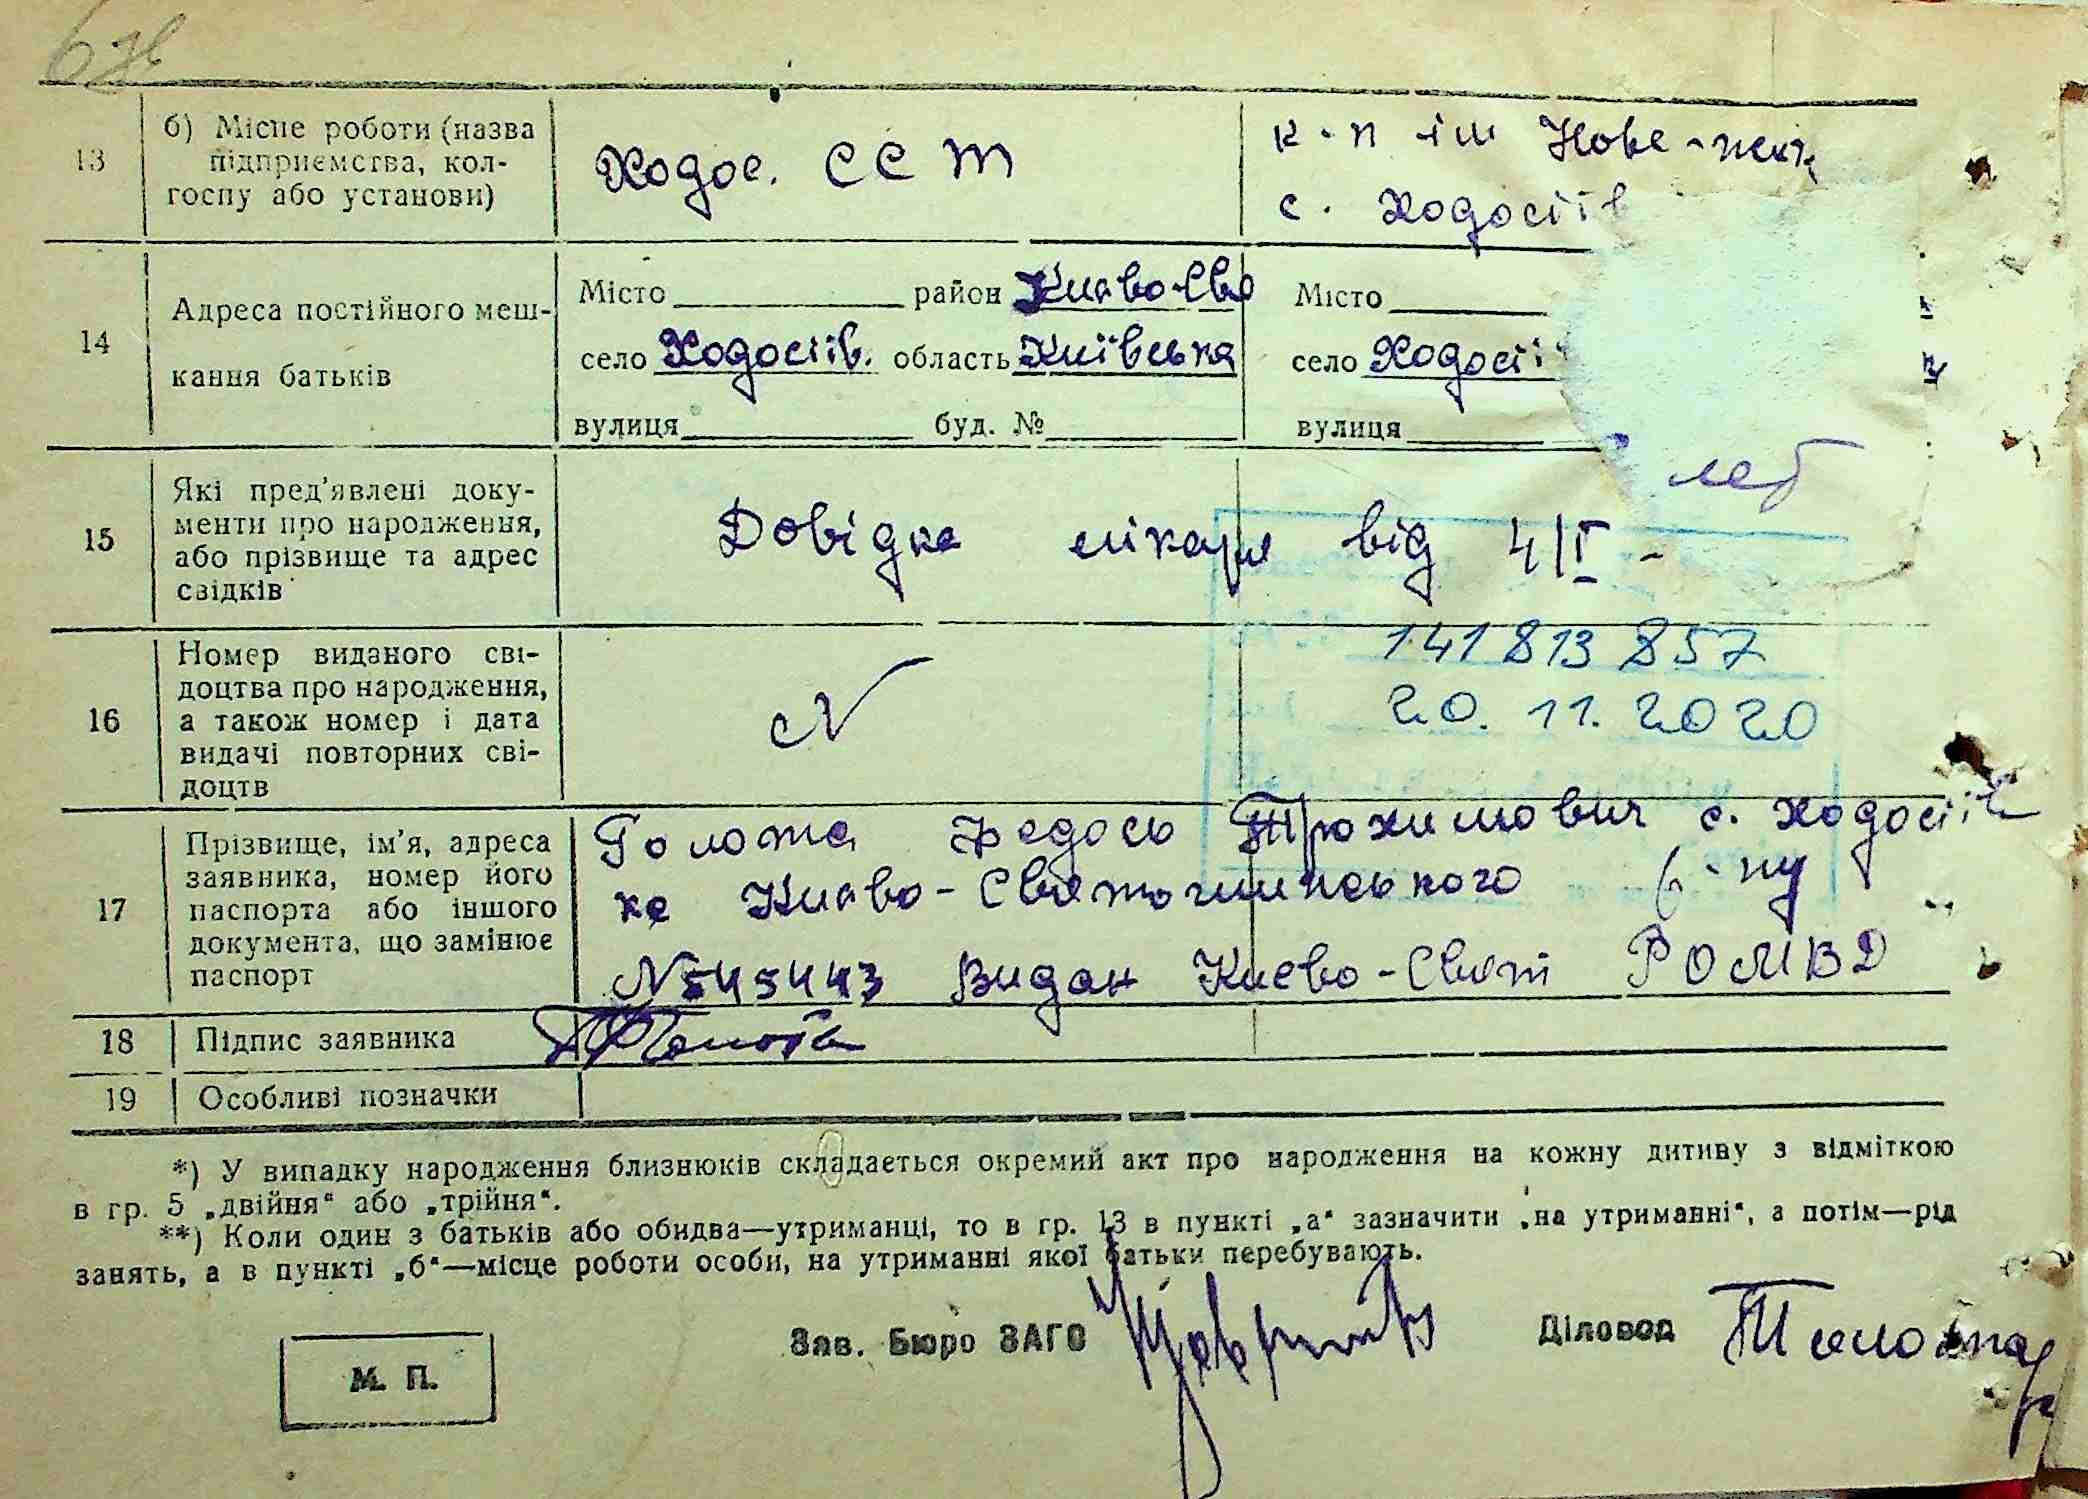 13
б) Місце роботи (назва
підприємства, кол-
госпу або установи)
Ходос. ССТ
к-п ім Нове-
с. Ходосіїв
14
Адреса постійного меш-
кання батьків
Місто район Києво-Свя
село Ходосіїв. область Київська
вулиця буд. №
Місто
село Ходосіїв
вулиця
15
Які пред'явлені доку-
менти про народження,
або прізвище та адрес
свідків
Довідка лікаря від 4/I -
16
Номер виданого сві-
доцтва про народження,
а також номер і дата
видачі повторних сві-
доцтв
N
141 813 857
20. 11. 2020
17
Прізвище, ім'я, адреса
заявника, номер його
паспорта або іншого
документа, що замінює
паспорт
Голота Федось Трохимович с. Ходосіїв
ка Києво-Святошинського р-ну
№545443 Видан Києво-Свят РОМВД
18 Підпис заявника
19 Особливі позначки
*) У випадку народження близнюків складається окремий акт про народження на кожну дитину з відміткою
в гр. 5 „двійня“ або „трійня“.
**) Коли один з батьків або обидва—утриманці, то в гр. 13 в пункті „а“ зазначити „на утриманні“, а потім—рід
занять, а в пункті „б“—місце роботи особи, на утриманні якої батьки перебувають.
Зав. Бюро ЗАГС
Діловод
М. П.